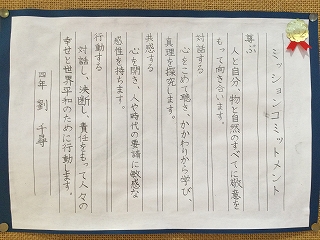 ミッションコミットメント
尊ぶ
人と自分、物と自然のすべてに敬意を
もって向き合います。
対話する
心をこめて聴き、かかわりから学び、
真理を探究します。
共感する
心を開き、人や時代の要請に敏感な
感性を持ちます。
行動する
対話し、決断し、責任をもって人々の
幸せと世界平和のために行動します。
四年 劉 千尋